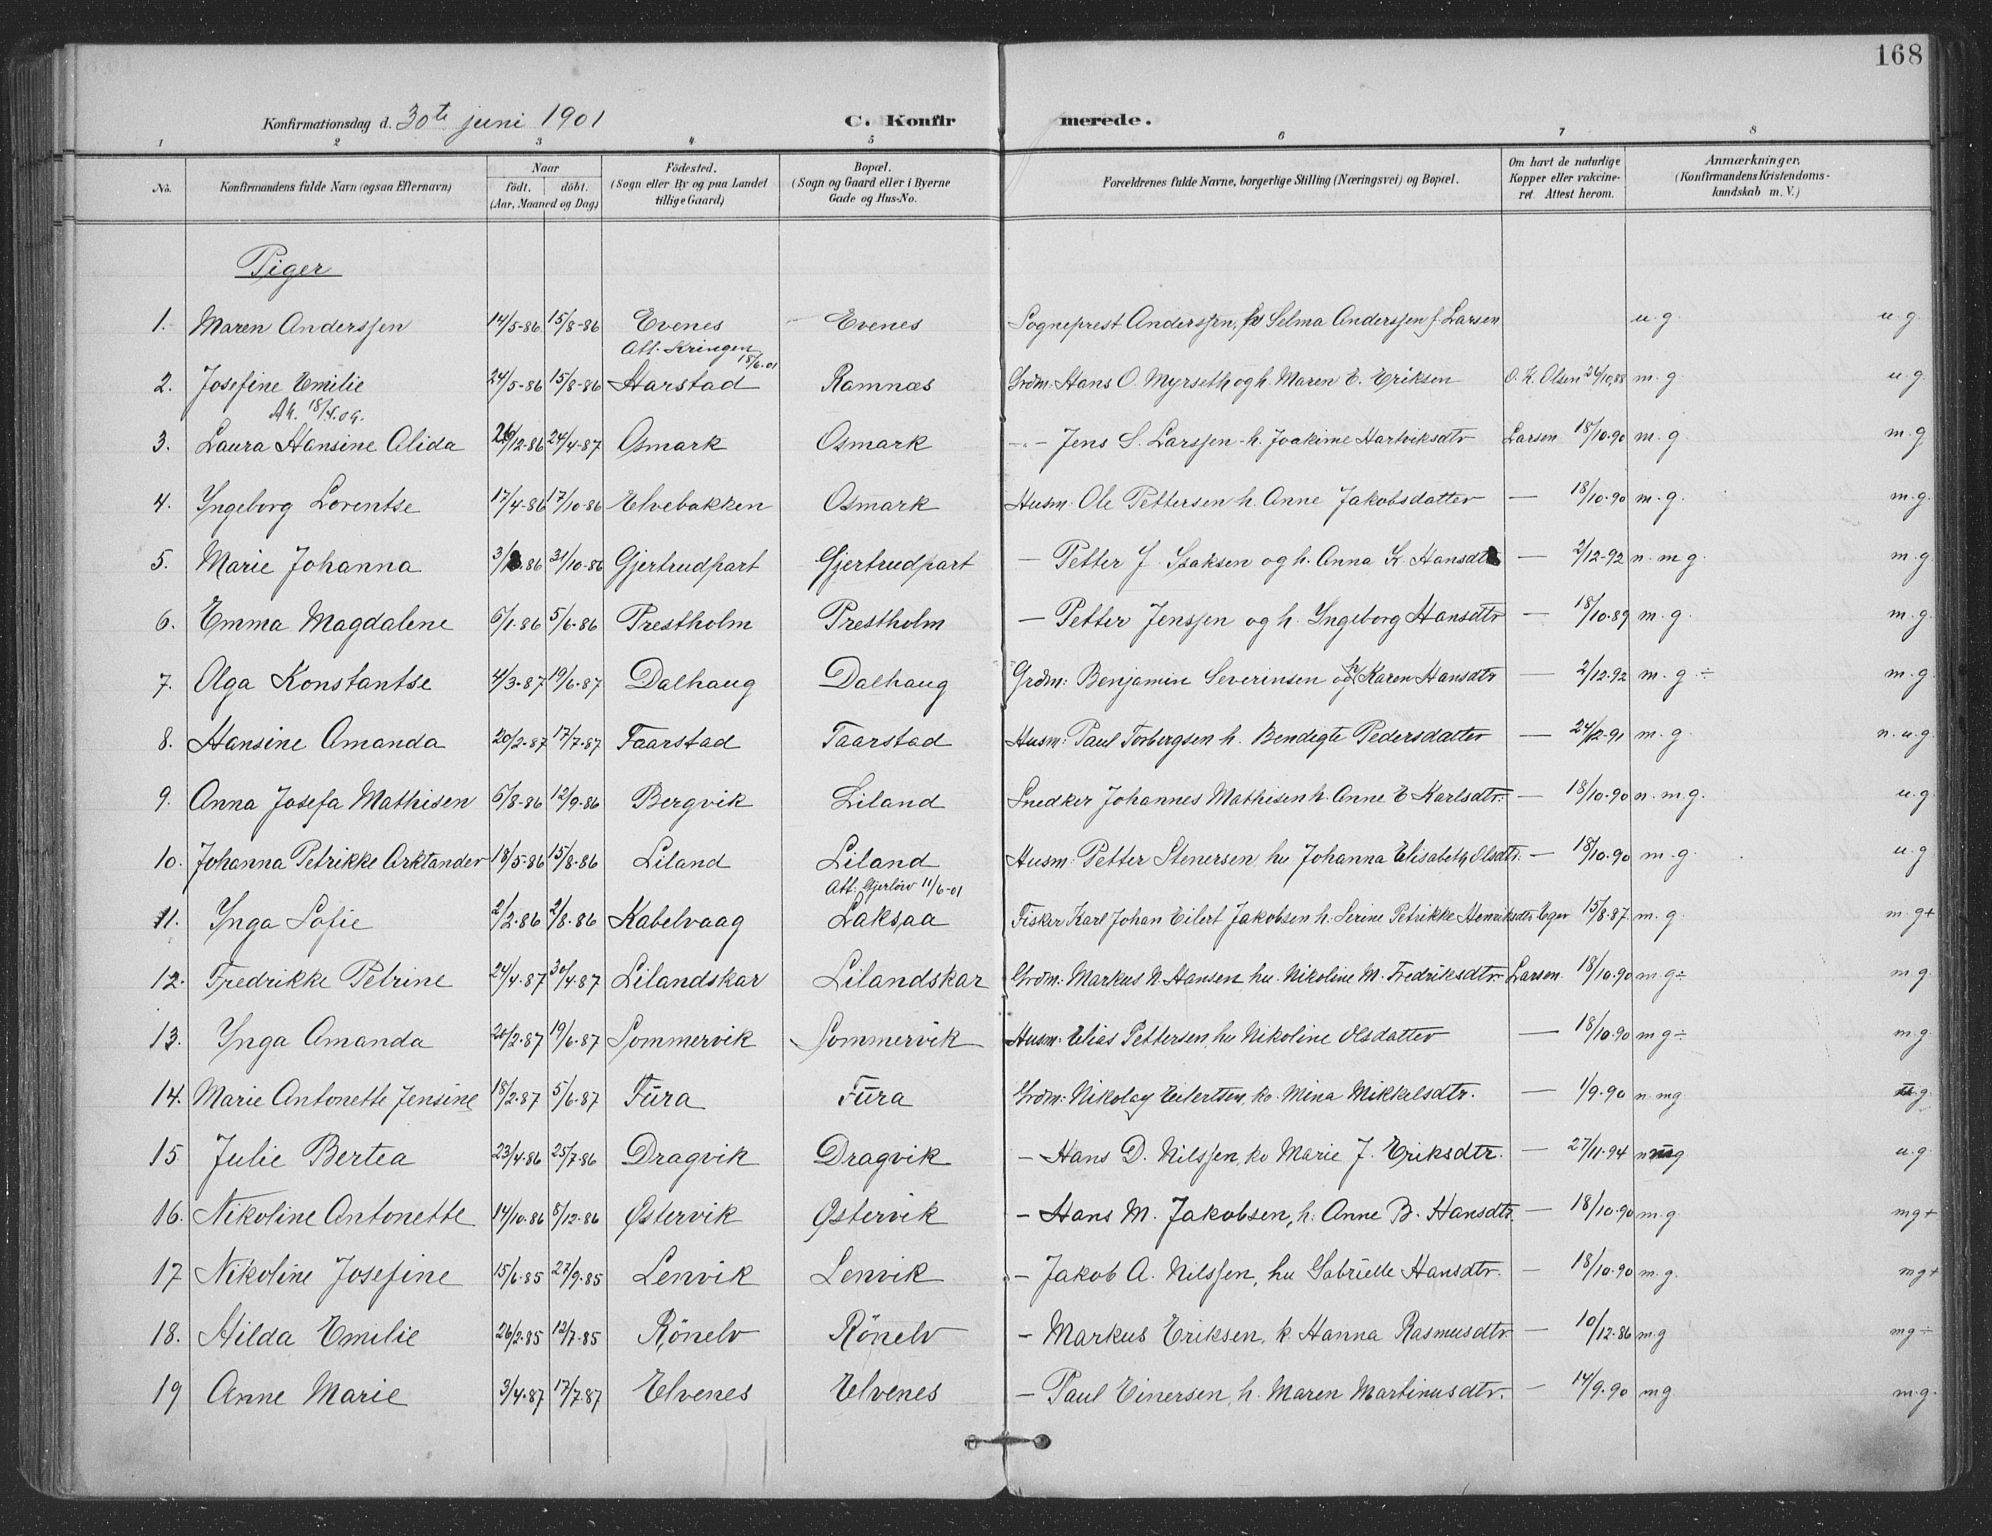 168
Konfirmationsdag d. 30te juni 1901 C. Konfirmerede.
1 2 3 4 5 6 7 8
No. Konfirmandens fulde Navn (ogsaa Efternavn) Naar födt. döbt. (Aar, Maaned og Dag) Födested. (Sogn eller By og paa Landet tillige Gaard) Bopæl. (Sogn og Gaard eller i Byerne Gade og Hus-No. Forældrenes fulde Navne, borgerlige Stilling (Næringsvei) og Bopæl. Om havt de naturlige Kopper eller vakcineret. Attest herom. Anmærkninger. (Konfirmandens Kristendomskundskab m. V.)
Piger
1. Maren Anderssen 14/5-86 15/8-86 Evenes Evenes Sogneprest Anderssen, Selma Anderssen f. Larsen u.g. u.g.
Att. Kringen 18/6-01
2. Josefine Emilie 24/5-86 15/8-86 Harstad Ramnæs Grdm: Hans O. Myrseth og h. Maren E. Eriksen O. K. Olsen 26/10.88 m.g. u.g.
18/4.09.
3. Laura Hansine Alida 26/12-86 24/4-87 Osmark Osmark - - Jens S. Larssen h. Joakime Hartviksdtr Larsen 18/10.90 m.g m.g
4. Ingeborg Lorentse 17/4-86 17/10-86 Elvebakken Osmark Husm: Ole Pettersen h. Anne Jakobsdatter — 18/10.90 m.g. m.g.
5. Marie Johanna 31/10-86 Gjertrudpart Gjertrudpart — Petter J. Isaksen og h. Anna K. Hansdtr — 2/12-92 n.m.g. m.g
6. Emma Magdalene 6/1.86 5/6.86 Prestholm Prestholm — Petter Jenssen og h. Ingeborg Hansdtr — 18/10.89 m.g. m.g.
7. Olga Konstantse 4/3-87 19/6-87 Dalhaug Dalhaug Grdm: Benjamin Severinsen og h Karen Hansdtr — 2/12.92 m.g ÷ m.g.
8. Hansine Amanda 20/2-87 17/7-87 Taarstad Taarstad Husm: Paul Torbergsen h. Bendigte Pedersdatter — 24/2.91 m.g. n.u.g.
9. Anna Josefa Mathisen 6/8-86 12/9-86 Bergvik Liland Snedker Johannes Mathisen h. Anne E Karlsdtr. — 18/10.90 n.m.g. u.g
10. Johanna Petrikke Arktander 18/5-86 15/8-86 Liland Liland Husm: Petter Stenersen hu Johanna Elisabeth Olsdtr. — 18/10.90 m.g. u.g
Att: Gjerlöw 11/6-01
11. Inga Sofie 2/2.86 2/8.86 Kabelvaag Laksaa Fisker Karl Johan Eilert Jakobsen h. Serine Petrikke Henriksdtr Eger 15/8.87 m.g. m.g+
12. Fredrikke Petrine 24/4.87 30/4.87 Lilandskar Lilandskar Grdm: Markus N. Hansen, hu. Nikoline M. Fredriksdtr. Larsen. 18/10.90 m.g÷ m.g.
13. Inga Amanda 20/2.87 19/6.87 Sommervik Sommervik Husm: Elias Pettersen, hu Nikoline Olsdatter — 18/10.90 m.g÷ m.g.
14. Marie Antonette Jensine 18/2.87 5/6.87 Fura Fura Grdm: Nikolay Eilertsen, ko. Mina Mikkelsdtr. — 1/9.90 n.mg g.
15 Julie Bertea 23/4.86 25/7.86 Dragvik Dragvik — Hans D. Nilssen, ko Marie J. Eriksdtr. — 27/11.94 u.g.
16. Nikoline Antonette 14/10.86 8/12.86 Østervik Østervik — Hans M. Jakobsen, h. Anne B. Hansdtr. — 18/10.90 m.g. mg+
17 Nikoline Josefine 15/6.85 27/9.85 Lenvik Lenvik — Jakob A. Nilssen, hu Gabrielle Hansdtr. — 18/10.90 m.g. mg+
18. Hilda Emilie 26/2.85 12/7.85 Rönelv Rönelv — Markus Eriksen, k. Hanna Rasmusdtr — 10/12.86 m.g mg÷
19 Anne Marie 3/4.87 17/7.87 Elvenes Elvenes — Paul Einersen, h. Maren Martinusdtr. — 14/9.90 mg m.g.